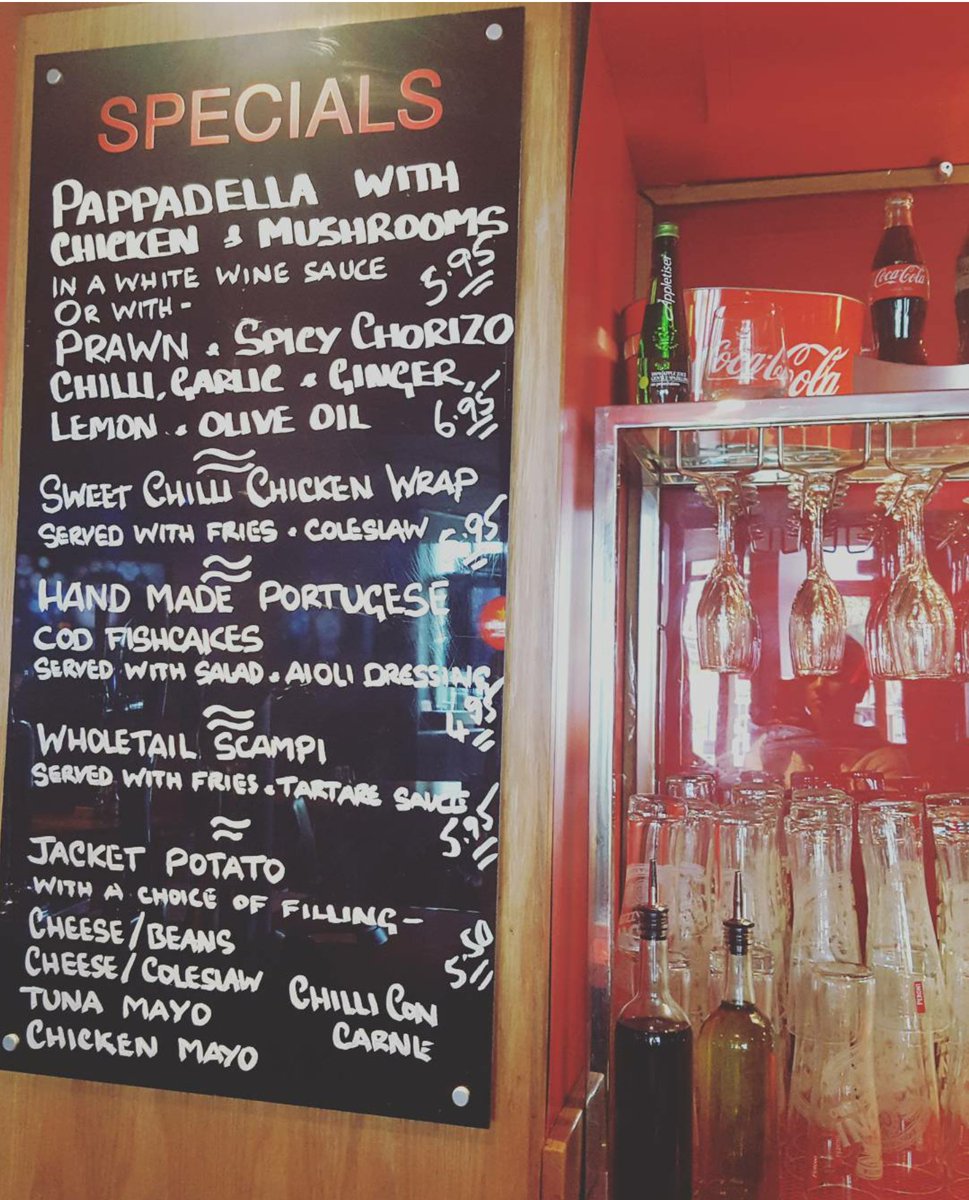 SPECIALS
PAPPADELLA WITH
CHICKEN & MUSHROOMS
IN A WHITE WINE SAUCE 5.95
OR WITH -
PRAWN & SPICY CHORIZO
CHILLI, GARLIC & GINGER,
LEMON & OLIVE OIL 6.95
SWEET CHILLI CHICKEN WRAP
SERVED WITH FRIES & COLESLAW
HAND MADE PORTUGESE
COD FISHCAKES
SERVED WITH SALAD & AIOLI DRESSING
4.95
WHOLETAIL SCAMPI
SERVED WITH FRIES & TARTARE SAUCE
5.95
JACKET POTATO
WITH A CHOICE OF FILLING -
CHEESE/BEANS 5.50
CHEESE/COLESLAW
TUNA MAYO
CHICKEN MAYO
CHILLI CON
CARNE
Appletiser
Coca-Cola
Coca-Cola
PERONI